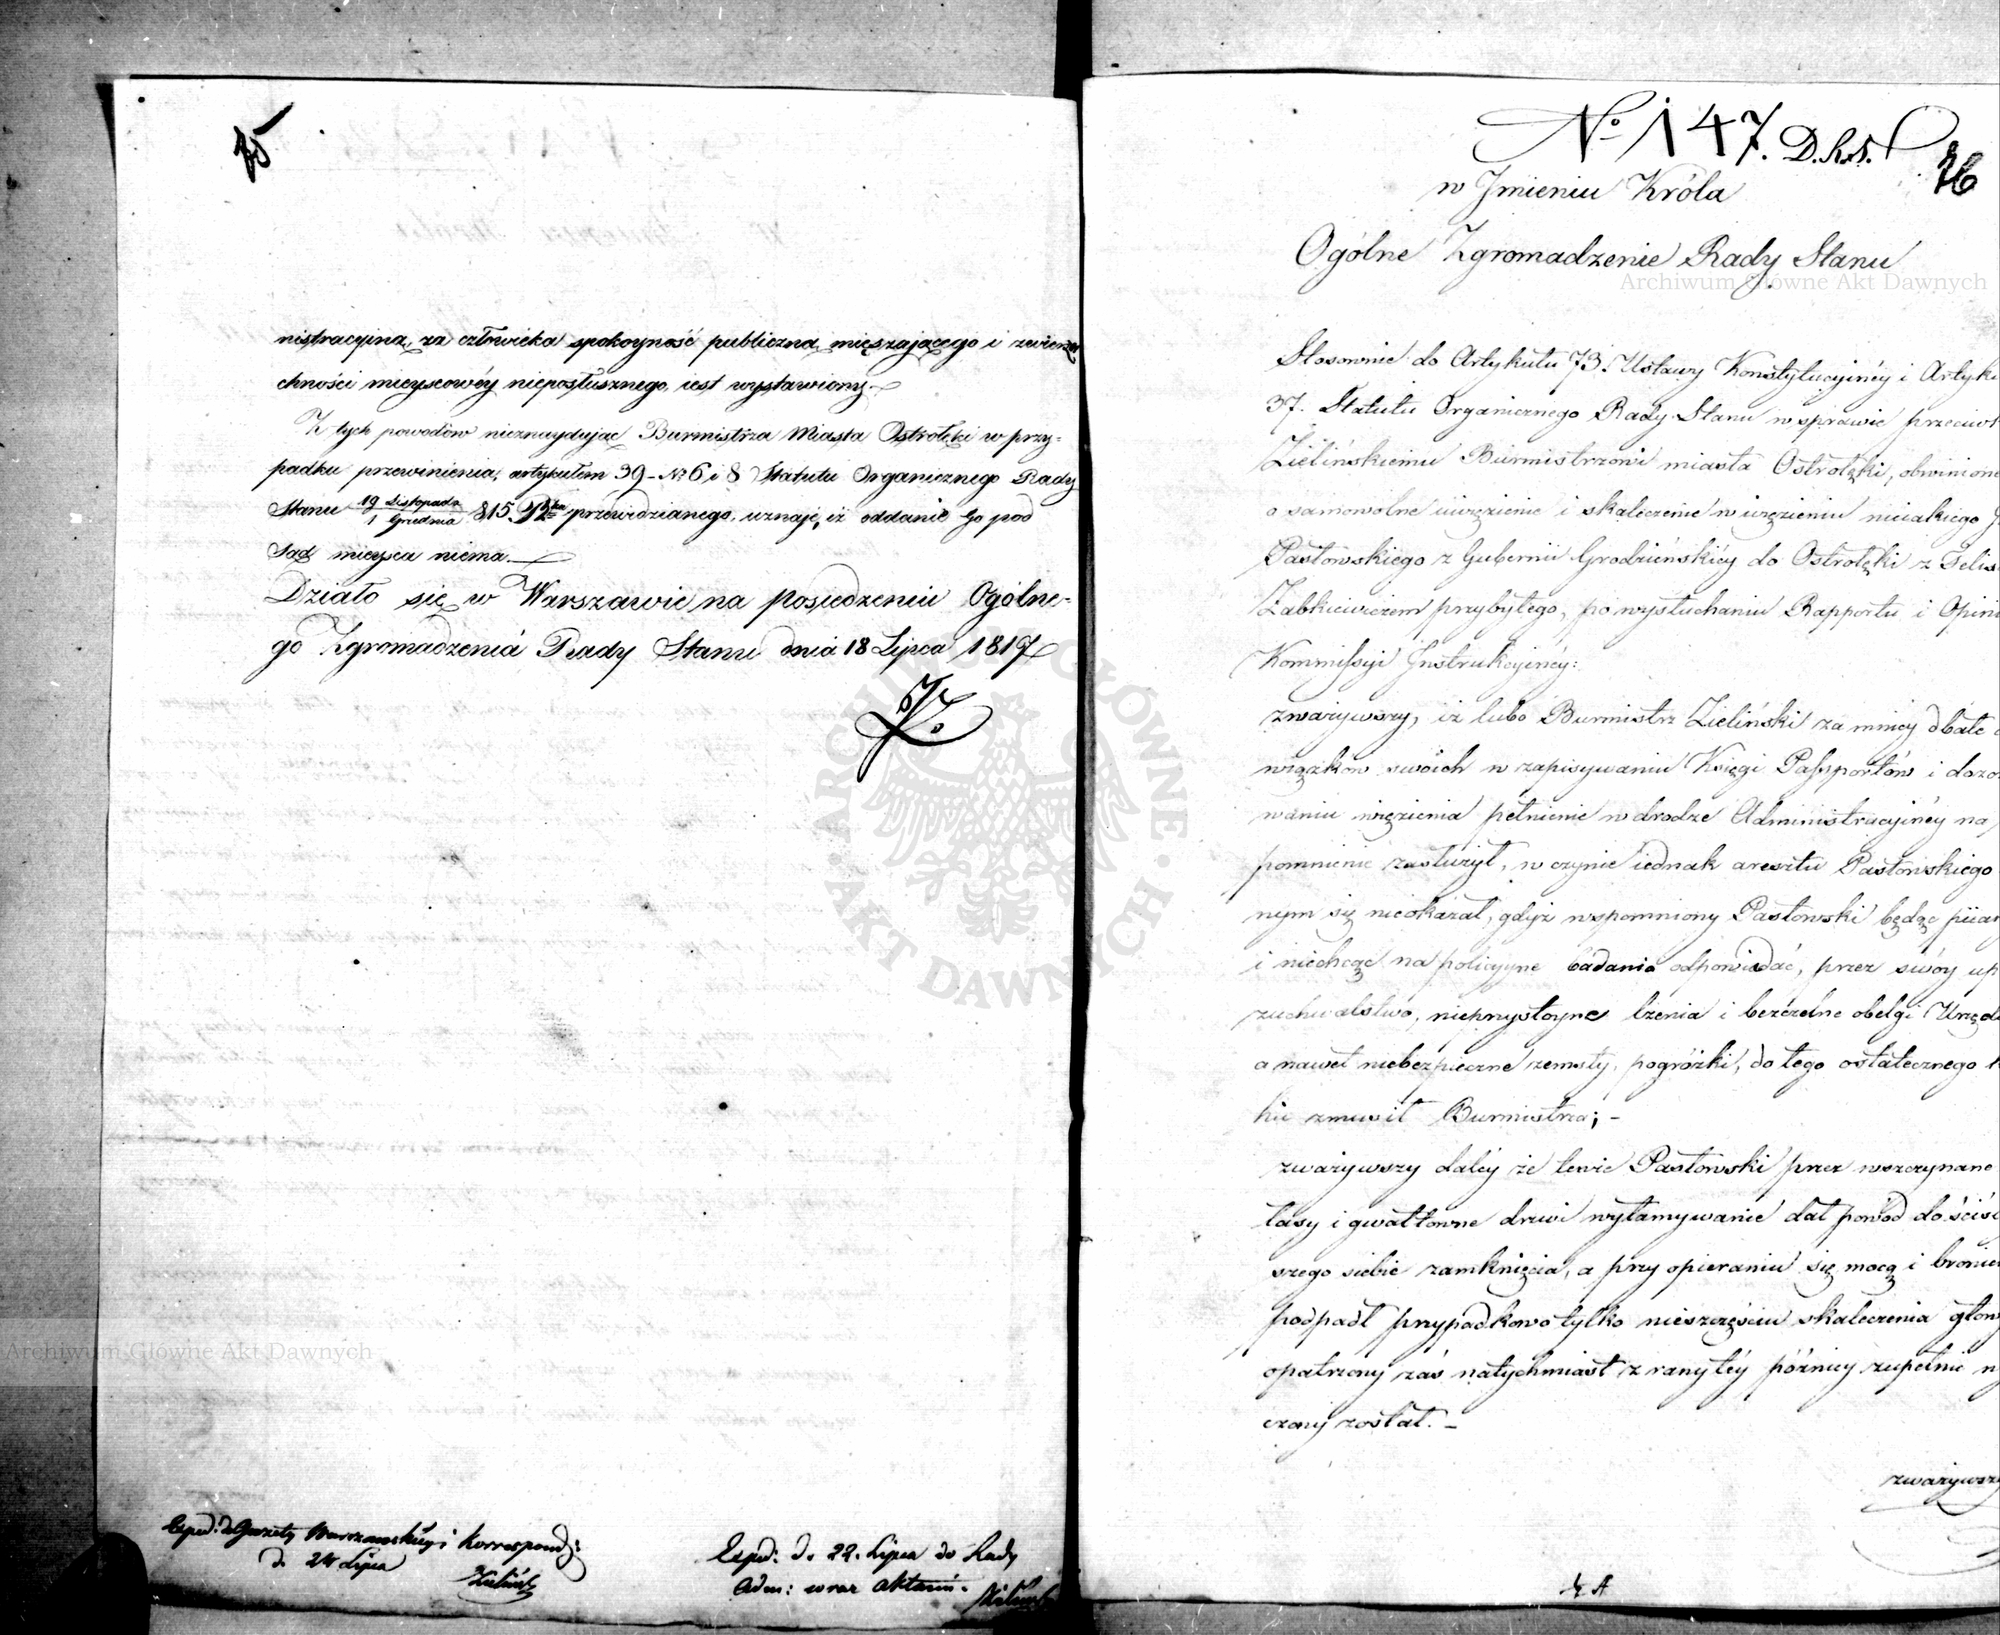 75
nistracyiną, za człowieka spokoyność publiczną mięszaiącego i zwierz
chności mieyscowéy nieposłusznego, iest wystawiony.
Z tych powodów nieznayduiąc Burmistrza Miasta Ostrołęki w przy-
padku przewinienia, artykułem 39 - No 6 i 8 Statutu Organicznego Rady
Stanu 19 Listopada / 1 Grudnia 815. przewidzianego, uznaie, iż oddanie Go pod
Sąd mieysca niema.
Działo się w Warszawie na posiedzeniu Ogólne-
go Zgromadzenia Rady Stanu dnia 18 Lipca 1817
Exped: do Gazety Warszawskiey i Korrespond:
d. 24 Lipca
Exped: d. 22. Lipca do Rady
Adm: wraz aktami.
No 147. D.R.S.
76
w Jmieniu Króla
Ogólne Zgromadzenie Rady Stanu
Stosownie do Artykułu 73. Ustawy Konstytucyinéy i Artyk
37. Statutu Organicznego Rady Stanu w sprawie przeciwk
Zielińskiemu Burmistrzowi miasta Ostrołęki, obwinione
o samowolne uwięzienie i skaleczenie w więzieniu nieiakiego
Pastowskiego z Gubernii Grodzieńskiéy do Ostrołęki z Felis
Ząbkiewiczem przybyłego, po wysłuchaniu Rapportu i Opini
Kommissyi Jnstrukcyinéy:
zważywszy, iż lubo Burmistrz Zieliński za mniéy dbałe
wiązków swoich w zapisywaniu Księgi Passportów i dozo
waniu więzienia pełnienie w drodze Administracyinéy na
pomnienie zasłużył, w czynie iednak aresztu Pastowskiego
nym się nieokazał, gdyż wspomniony Pastowski będąc piian
i niechcąc na policyyne badania odpowiadać, przez swóy up
zuchwalstwo, nieprzystoyne lżenia i bezczelne obelgi Urzęd
a nawet niebezpieczne zemsty, pogróżki, do tego ostatecznego
ku zmusił Burmistrza; -
zważywszy daléy że tenże Pastowski przez wszczynane
łasy i gwałtowne drzwi wyłamywanie dał powód do ściśl
szego siebie zamknięcia, a przy opieraniu się mocą i broniu
podpadł przypadkowo tylko nieszczęściu skaleczenia głow
opatrzony zaś natychmiast z rany téy późniéy zupełnie wy
czony został. -
zważywszy
Archiwum Główne Akt Dawnych
Archiwum Główne Akt Dawnych
ARCHIWUM GŁÓWNE · AKT DAWNYCH ·